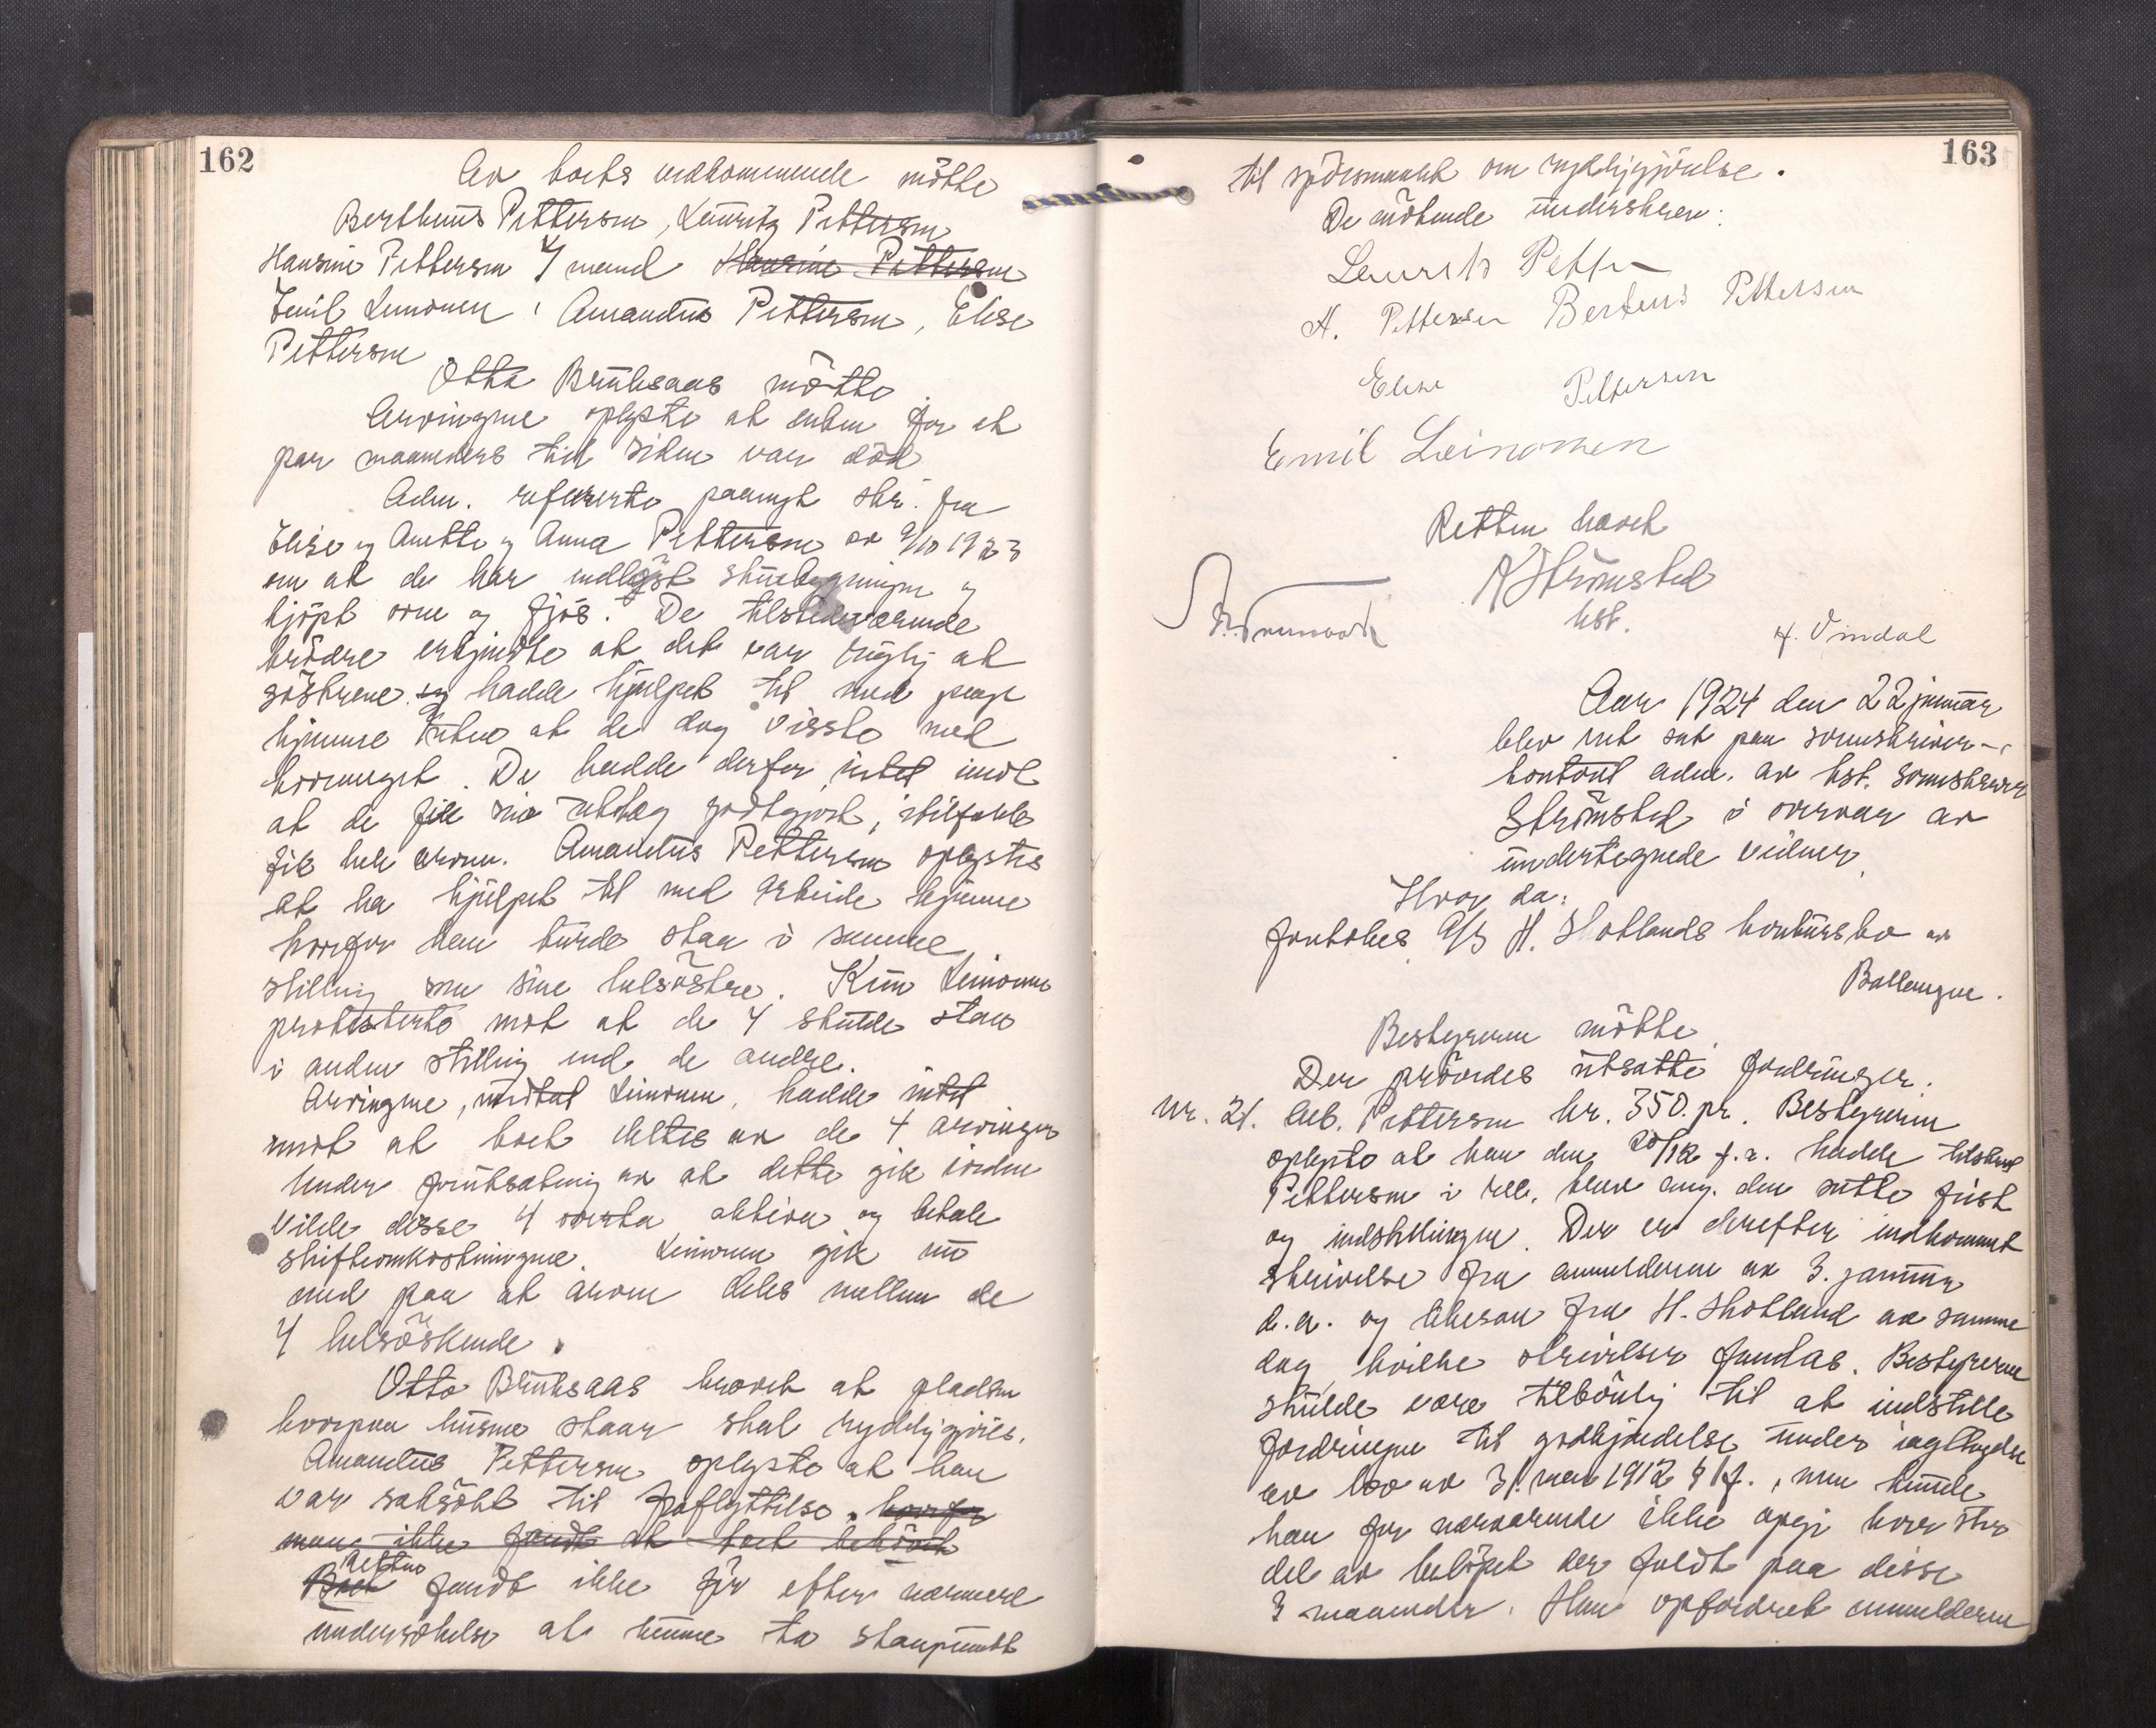 162
Av boets vedkommende mötte
Bertheus Pettersen, Lauritz Pettersen
Hansine Pettersen v/ mand Hansine Pettersen
Emil Leinonen, Amandus Pettersen, Elise
Pettersen
Otto Bruksaas mötte.
Arvingene oplyste at enken for et
par maaneder tid siden var död.
Adm. refererte paaany skr. fra
Elise og Anette og Anna Pettersen av 9/10 1923
om at de har indlöst stuebygningen og
kjöpt ovn og fjös. De tilstedeværende
brödre erkjendte at det var rigtig at
söstrene og hadde hjulpet til med penge
hjemme uten at de dog visste med
hvormeget. De hadde derfor intet imot
at de fik sine utlæg godtgjort, i tilfælde
fik hele arven. Amandus Pettersen oplystes
at ha hjulpet til med arbeide hjemme
hvorfor han burde staa i samme
stilling som sine helsöstre. Kun Leinonen
protesterte mot at de 4 skulde staa
i anden stilling end de andre.
Arvingene, undtat Leinonen, hadde intet
imot at boet deltes av de 4 arvinger
Under forutsætning av at dette gik iorden
vilde disse 4 overta aktiva og betale
skifteomkostningene. Leinonen gik nu
med paa at arven deles mellem de
4 helsöskende.
Otto Bruksaas krævet at pladsen
hvorpaa husene staar skal ryddiggjöres.
Amandus Pettersen oplyste at han
var saksökt til fraflyttelse. hvorfor
man ikke fandt at boet behövet
Retten
Boet fandt ikke för efter nærmere
undersökelse at kunne ta standpunkt
163
til spörsmaalet om ryddiggjörelse.
De mötende underskrev:
Laurits Petters
H. Pettersen Berteus Pettersen
Elise Pettersen
Emil Leinonen
Retten hævet
K Strömsted
kst.
H. Vindal
Aar 1924 den 22 januar
blev ret sat paa sorenskriver-
kontoret adm. av kst. sorenskriver
Strömsted i overvær av
undertegnede vidner.
Hvor da:
foretokes A/S H. Skotlands konkursbo av
Ballangen.
Bestyreren mötte.
Der prövdes utsatte fordringer.
Nr. 21. Alb. Pettersen kr. 350. pr. Bestyreren
oplyste at han den 20/12 f.a. hadde tilskrevet
Pettersen i rek. brev ang. den satte frist
og indstillingen. Der er derefter indkommet
skrivelse fra anmelderen av 3. januar
d.a. og likesaa fra H. Skotland av samme
dag, hvilke skrivelser fandtes. Bestyreren
skulde være tilböielig til at indstille
fordringen til godkjendelse under iagttagelse
av lov av 31. mai 1912 § 1 f., men kunde
han for nærværende ikke opgi hvor stor
del av belöpet der faldt paa disse
3 maaneder. Han opfordret anmelderen